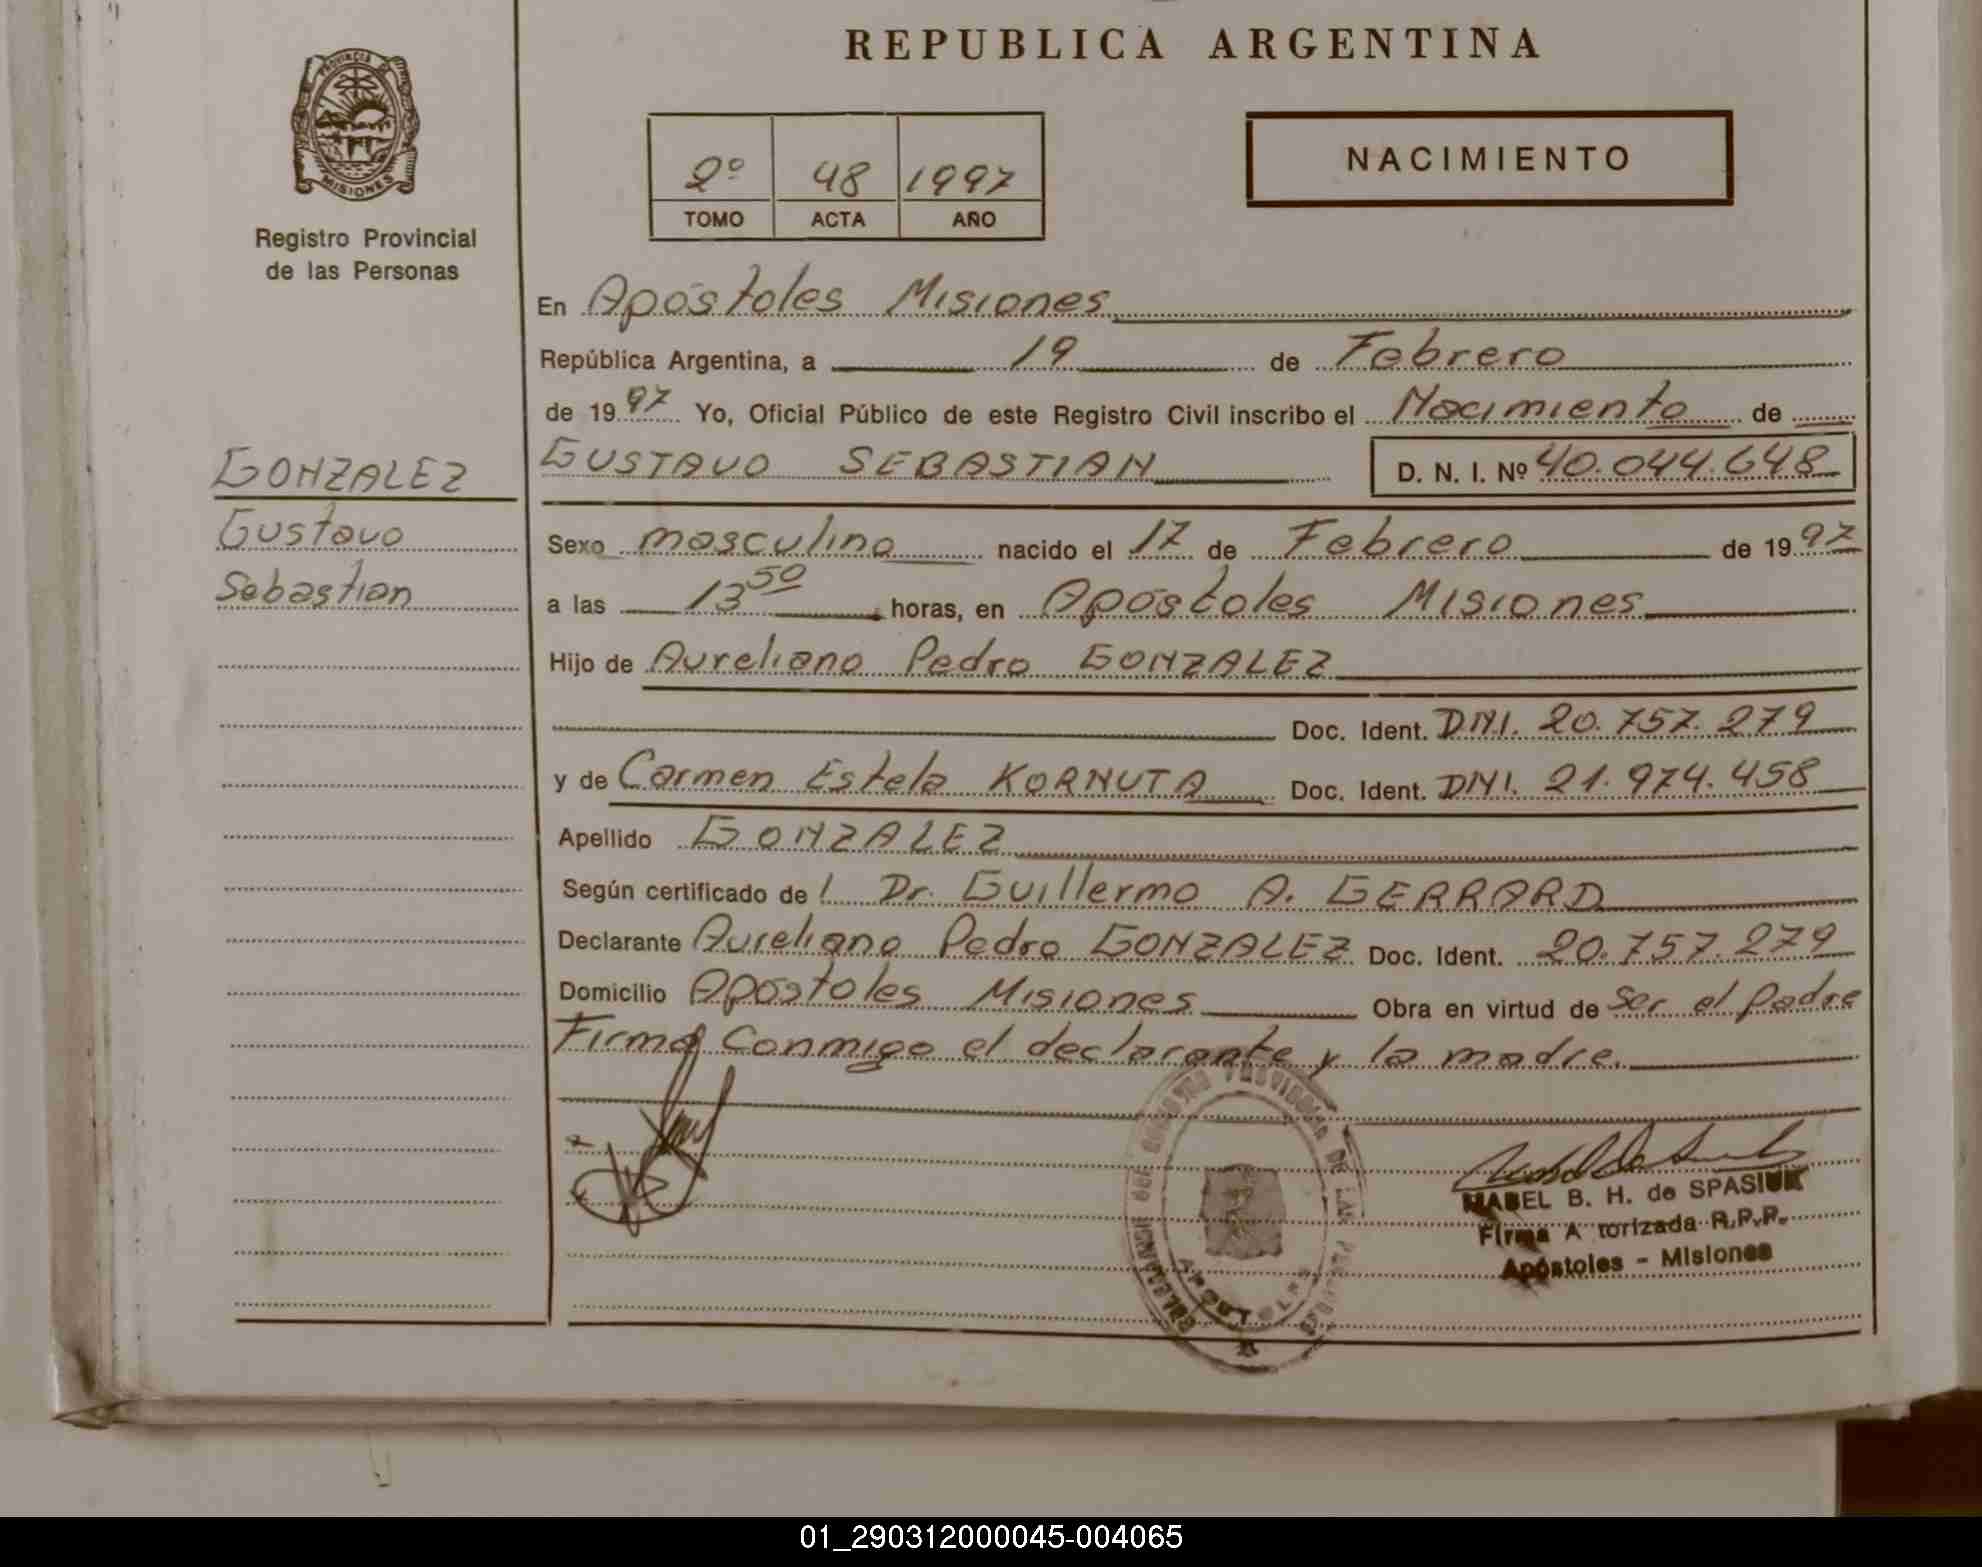 REPUBLICA ARGENTINA
PROVINCIA DE
MISIONES
Registro Provincial
de las Personas
2º 48 1997
TOMO ACTA AÑO
NACIMIENTO
En Apóstoles Misiones
República Argentina, a 19 de Febrero
de 1997 Yo, Oficial Público de este Registro Civil inscribo el Nacimiento de
GONZALEZ
Gustavo
Sebastian
GUSTAVO SEBASTIAN D. N. I. Nº 40.044.648
Sexo masculino nacido el 17 de Febrero de 1997
a las 13 50 horas, en Apóstoles Misiones
Hijo de Aureliano Pedro GONZALEZ
Doc. Ident. DNI. 20.757.279
y de Carmen Estela KORNUTA Doc. Ident. DNI. 21.974.458
Apellido GONZALEZ
Según certificado de l Dr. Guillermo A. GERRARD
Declarante Aureliano Pedro GONZALEZ Doc. Ident. 20.757.279
Domicilio Apóstoles Misiones Obra en virtud de ser el padre
Firma Conmigo el declarante y la madre.
MABEL B. H. de SPASIUK
Firma A torizada R.P.P.
Apóstoles - Misiones
01_290312000045-004065